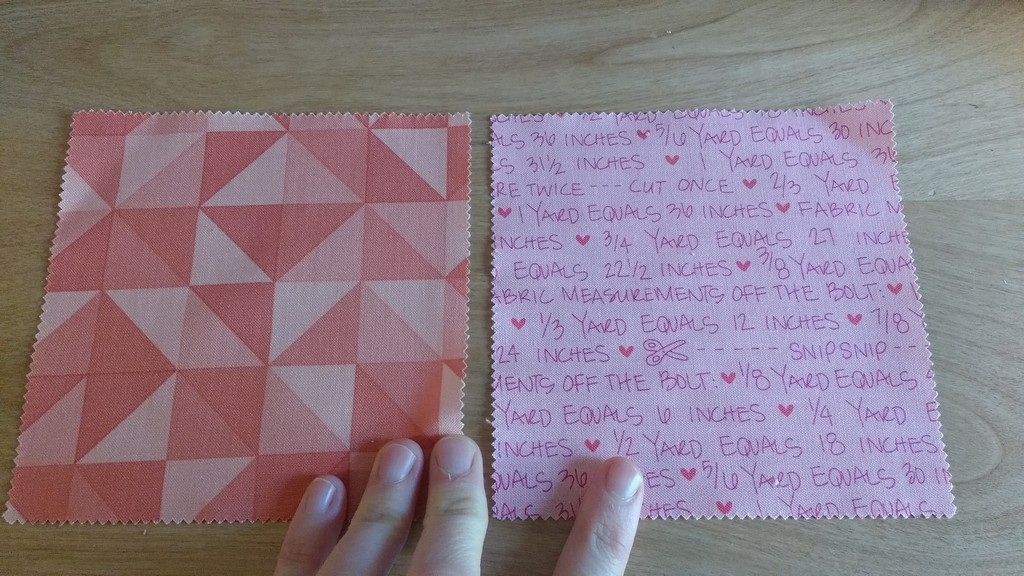 36 INCHES ♥ 5/6 YARD EQUALS 30 INC
S 31 1/2 INCHES ♥ 1 YARD EQUALS 36
RE TWICE --- CUT ONCE ♥ 2/3 YARD E
♥ 1 YARD EQUALS 36 INCHES ♥ FABRIC M
NCHES ♥ 3/4 YARD EQUALS 27 INCHE
EQUALS 22 1/2 INCHES ♥ 3/8 YARD EQUA
ABRIC MEASUREMENTS OFF THE BOLT: ♥
♥ 1/3 YARD EQUALS 12 INCHES ♥ 7/8 Y
24 INCHES ♥ ✂ ------ SNIP SNIP --
MENTS OFF THE BOLT: ♥ 1/8 YARD EQUALS
YARD EQUALS 6 INCHES ♥ 1/4 YARD E
INCHES ♥ 1/2 YARD EQUALS 18 INCHES
UALS 36 ES ♥ 5/6 YARD EQUALS 30 IN
ALS INCHES ♥ 1 YARD EQUALS